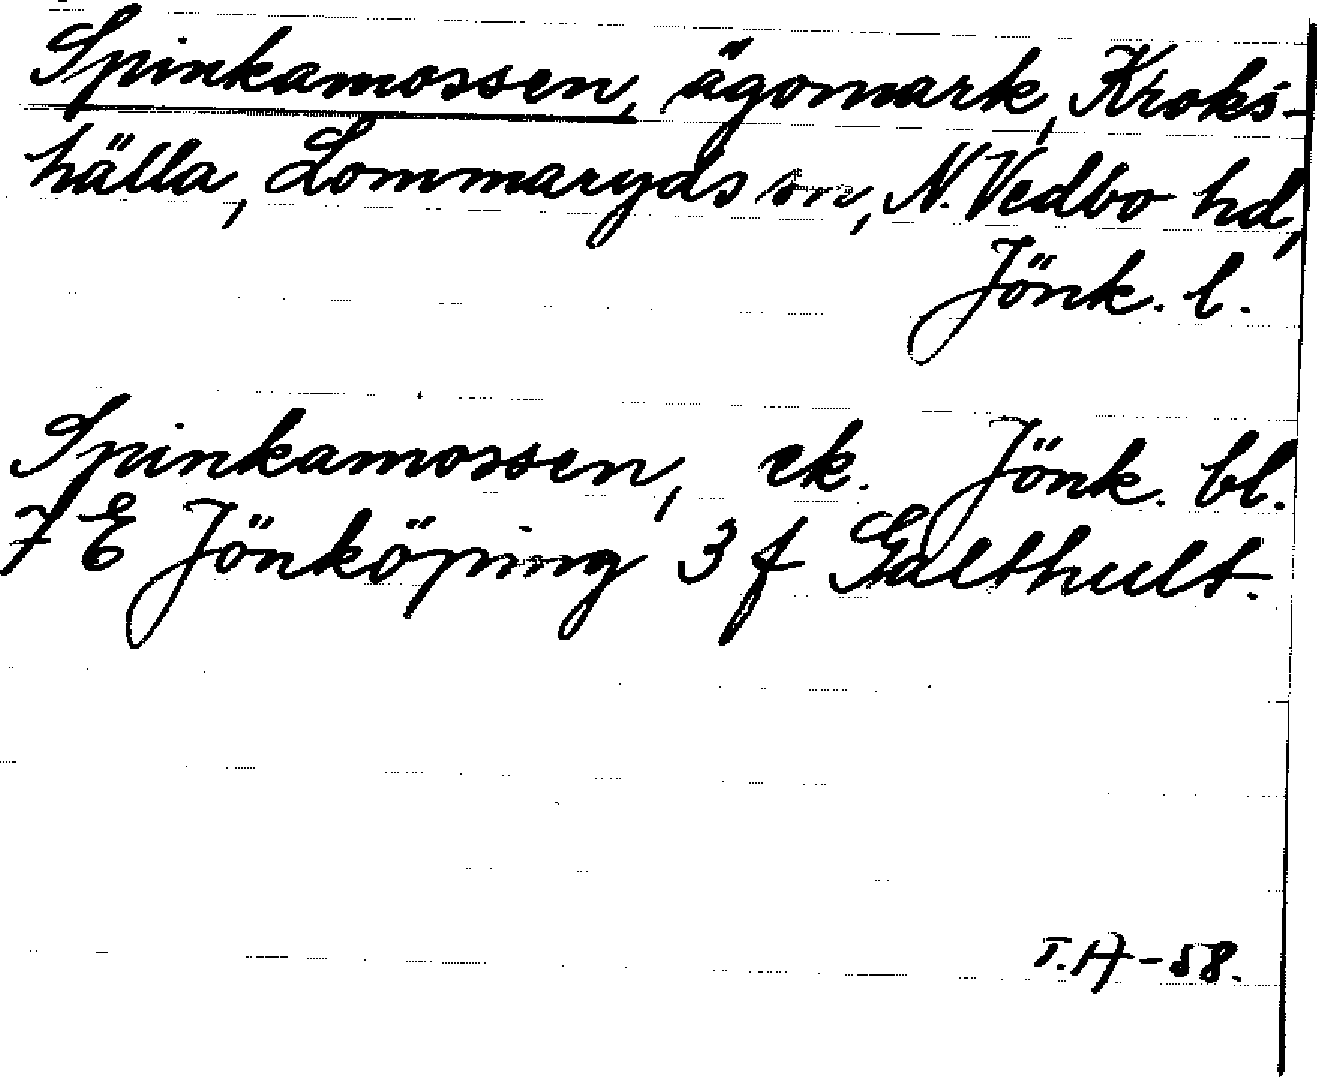 Spinkamossen, ägomark, Kroks-
hälla, Lommaryds sn, N. Vedbo hd,
Jönk. l.
Spinkamossen, ek. Jönk. bl.
7 E Jönköping 3 f Galthult.
T.H-58.